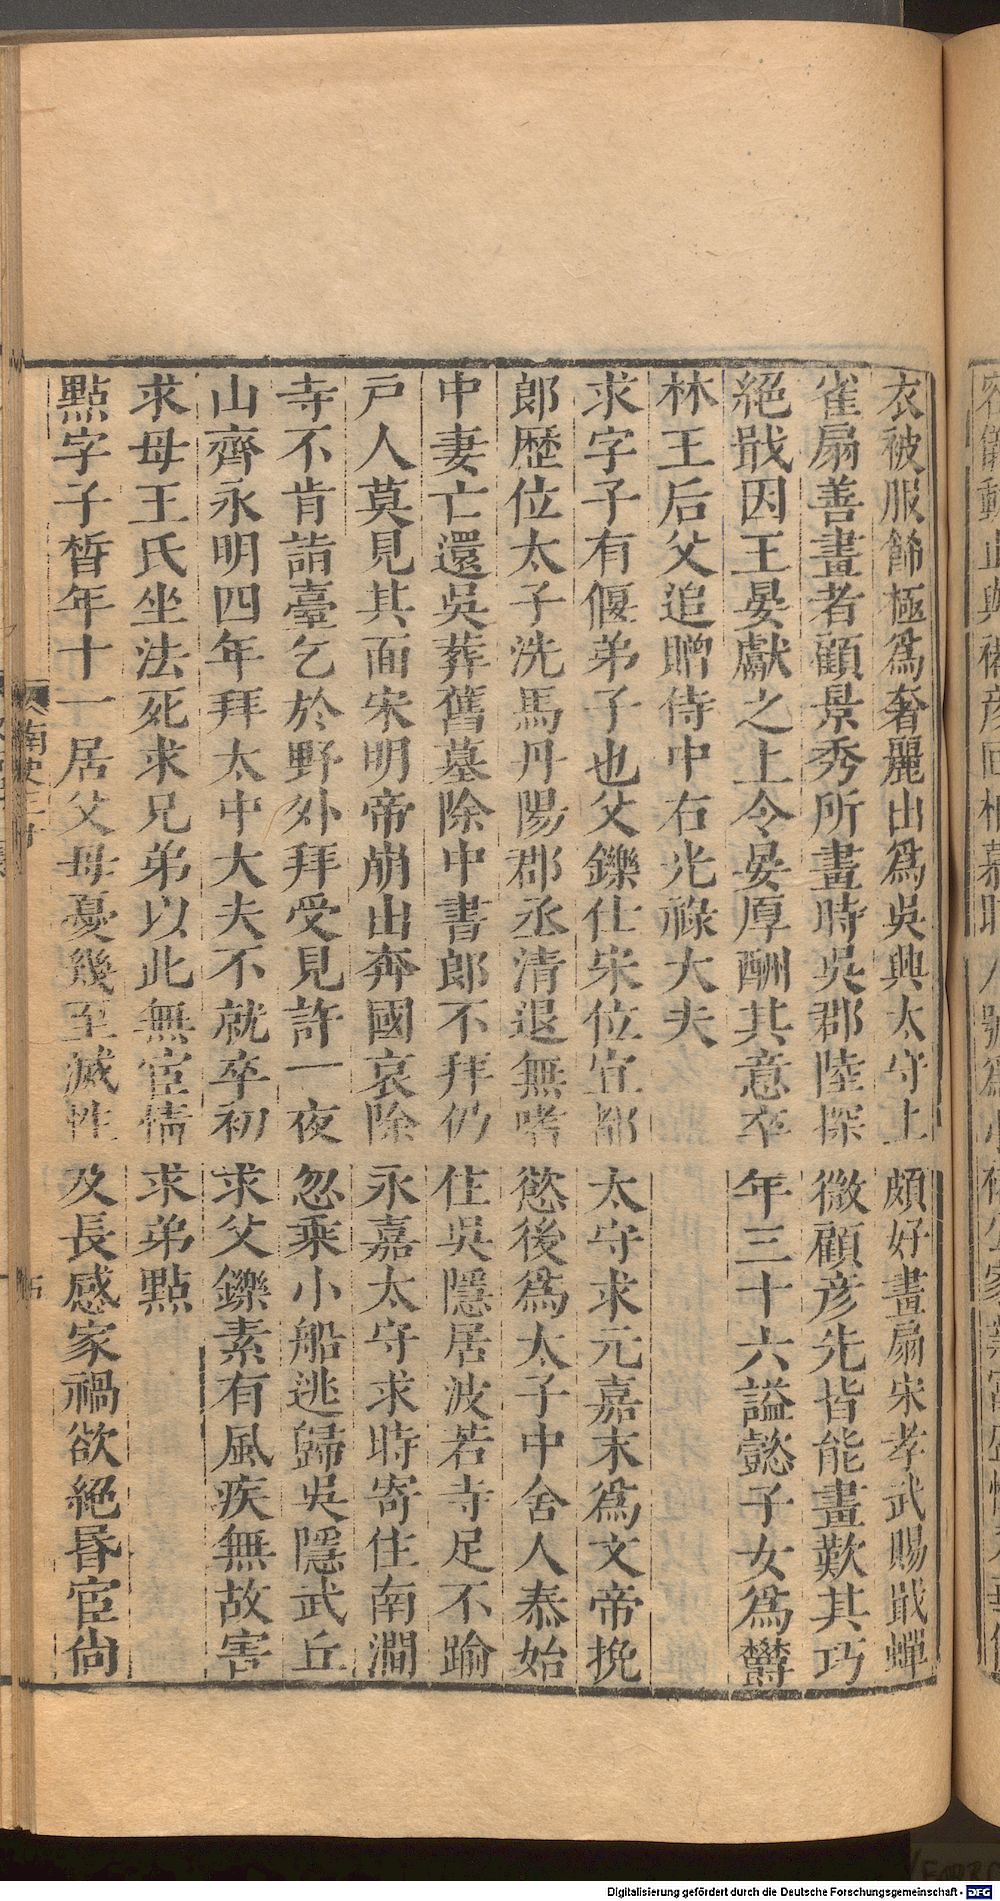 衣被服飾極爲奢麗出爲吳興太守上頗好畫扇宋孝武賜戢蟬
雀扇善畫者顧景秀所畫時吳郡陸探微顧彦先皆能畫歎其巧
絕戢因王晏獻之上令晏厚酬其意卒年三十六謚懿子女爲鬱
林王后父追贈侍中右光祿大夫
求字子有偃弟子也父鑠仕宋位宜都太守求元嘉末爲文帝挽
郎歷位太子洗馬丹陽郡丞清退無嗜慾後爲太子中舍人泰始
中妻亡還吳葬舊墓除中書郎不拜仍住吳隱居波若寺足不踰
戸人莫見其面宋明帝崩出奔國哀除永嘉太守求時寄住南澗
寺不肯詣臺乞於野外拜受見許一夜忽乘小船逃歸吳隱武丘
山齊永明四年拜太中大夫不就卒初求父鑠素有風疾無故害
求母王氏坐法死求兄弟以此無宦情求弟點
點字子晳年十一居父母憂幾至滅性及長感家禍欲絕昬宦尙
南史三十
Digitalisierung gefördert durch die Deutsche Forschungsgemeinschaft - DFG